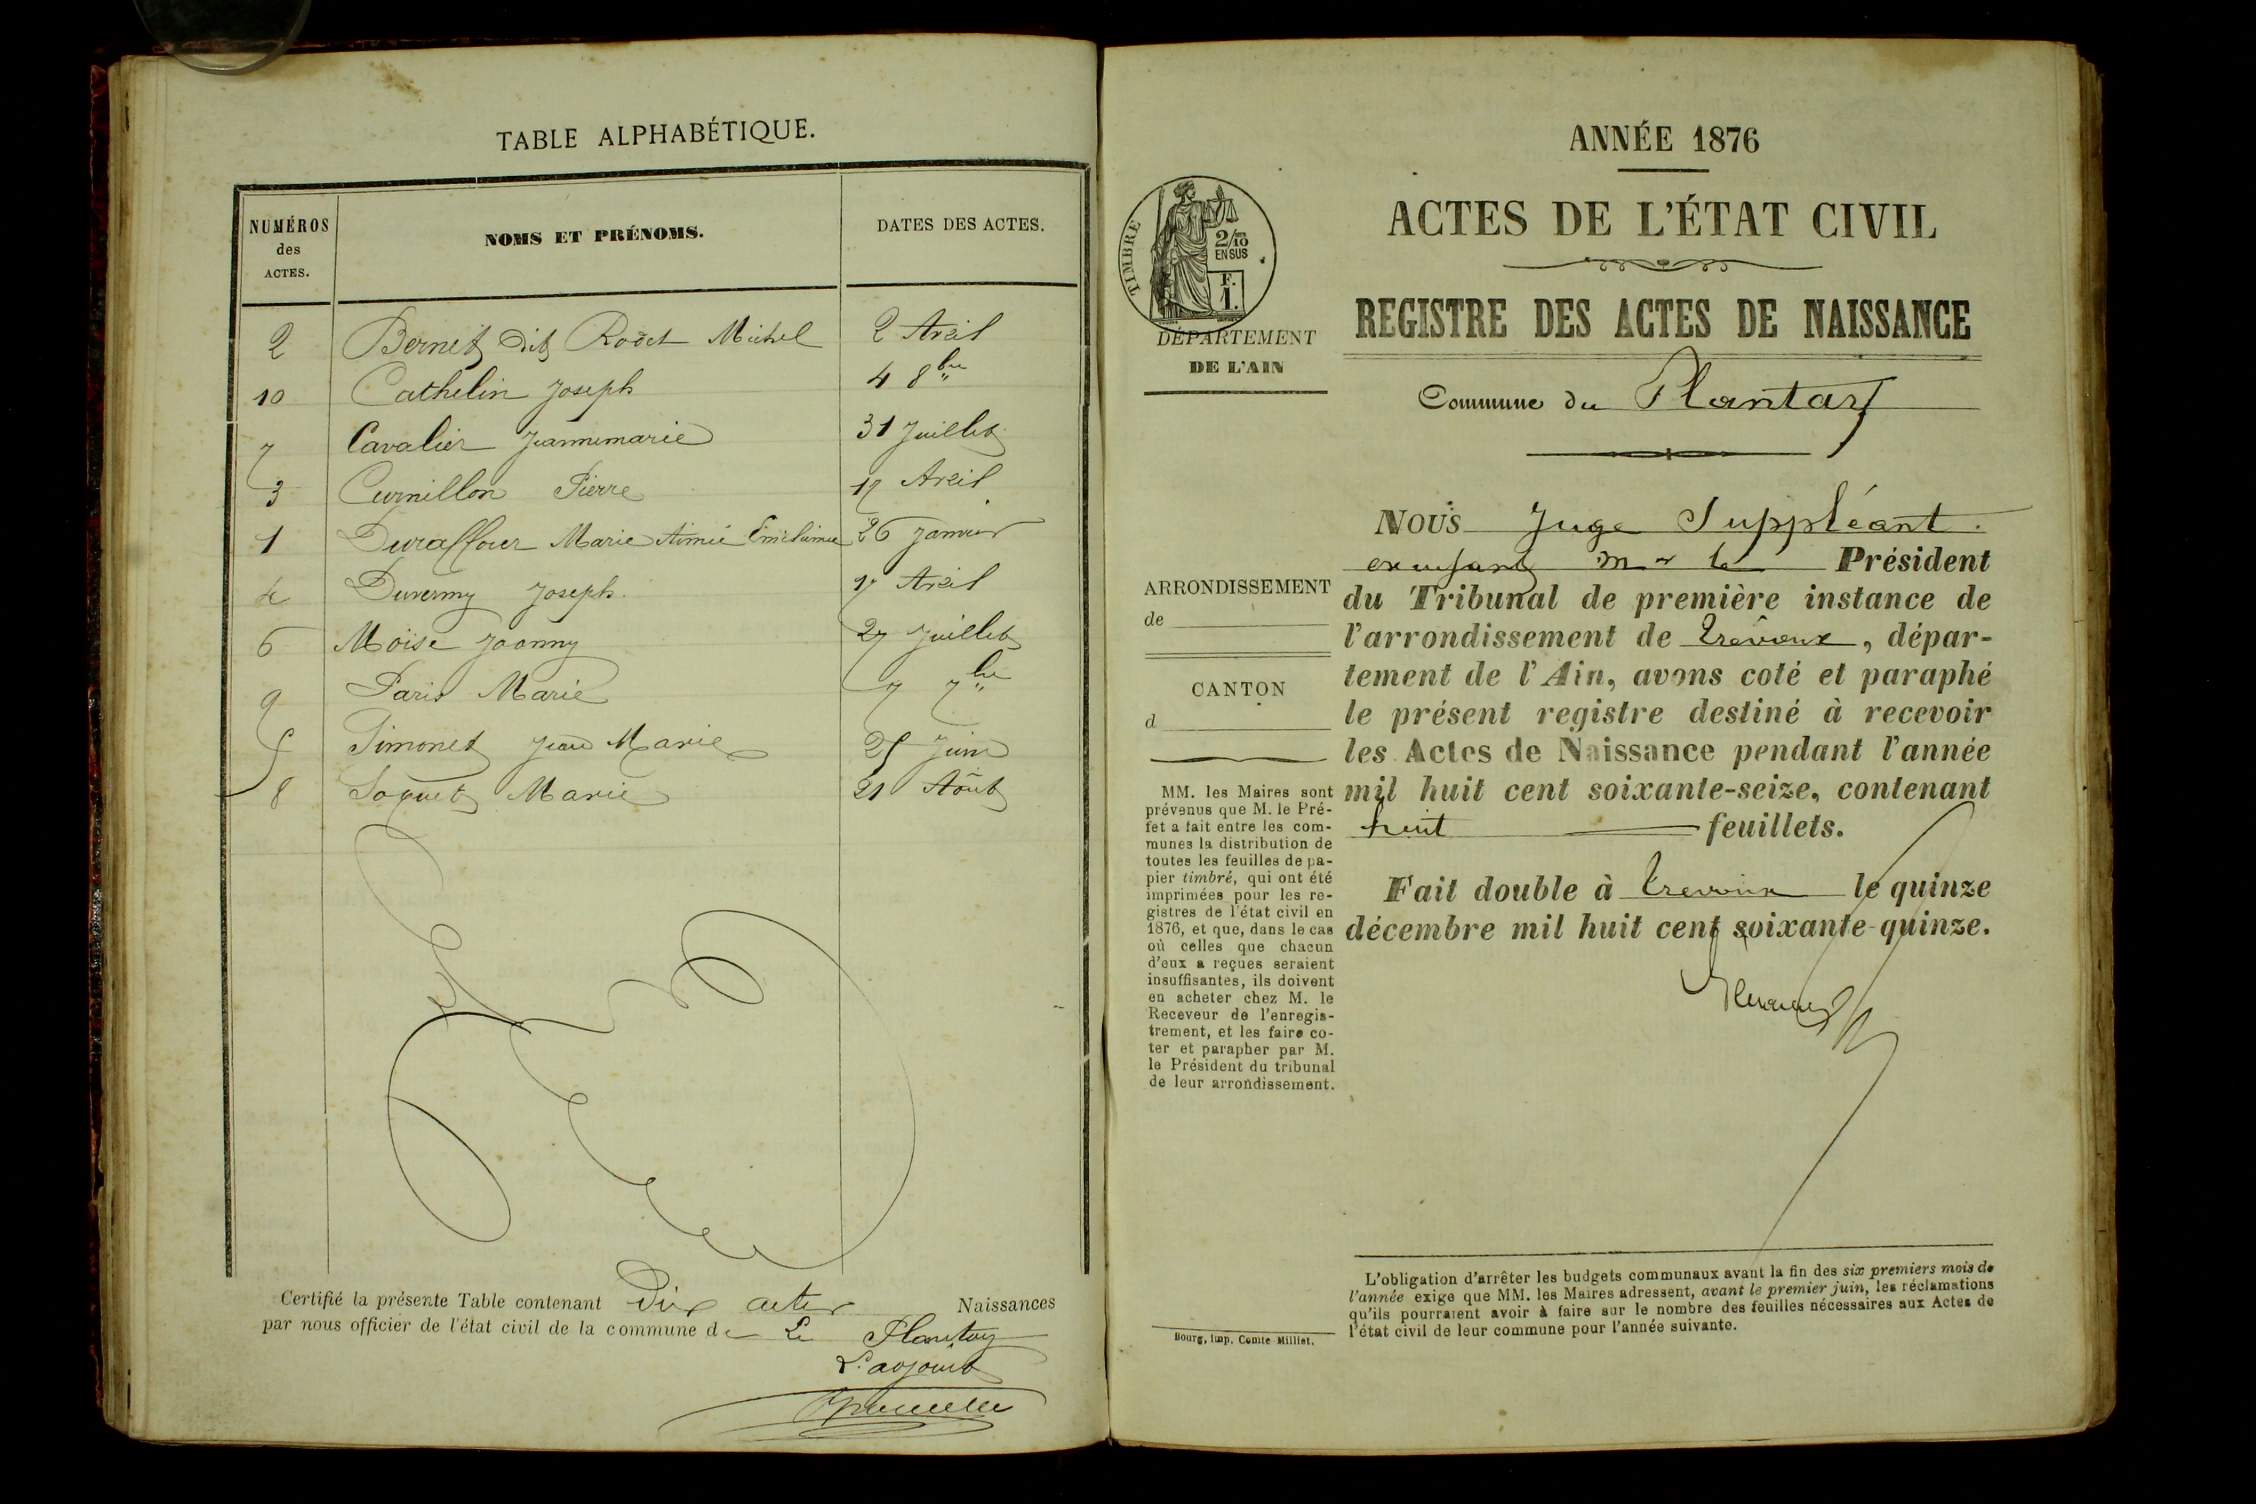 TABLE ALPHABÉTIQUE.
NUMÉROS des ACTES.
NOMS ET PRÉNOMS.
DATES DES ACTES.
2 Bernet dit Rodet Michel 2 Avril
10 Cathelin Joseph 4 8bre
7 Cavalier Jeannemarie 31 Juillet
3 Curnillon Pierre 17 Avril
1 Duraffour Marie Aimée 26 Janvier
4 Duvermy Joseph 17 Avril
6 Moïse Joanny 27 Juillet
9 Paris Marie 7 7bre
5 Simonet Jean Marie 25 Juin
8 Soquet Marie 21 Août
Certifié la présente Table contenant Dix actes Naissances
par nous officier de l'état civil de la commune de Le Plantay
L'adjoint
ANNÉE 1876
ACTES DE L'ÉTAT CIVIL
REGISTRE DES ACTES DE NAISSANCE
TIMBRE
2/10
EN SUS
F.
1.
DÉPARTEMENT
DE L'AIN
Commune du Plantay
ARRONDISSEMENT
de
CANTON
d
MM. les Maires sont
prévenus que M. le Pré-
fet a fait entre les com-
munes la distribution de
toutes les feuilles de pa-
pier timbré, qui ont été
imprimées pour les re-
gistres de l'état civil en
1876, et que, dans le cas
où celles que chacun
d'eux a reçues seraient
insuffisantes, ils doivent
en acheter chez M. le
Receveur de l'enregis-
trement, et les faire co-
ter et parapher par M.
le Président du tribunal
de leur arrondissement.
Bourg, imp. Comte Milliet.
NOUS Juge Suppléant
Mr le Président
du Tribunal de première instance de
l'arrondissement de Trévoux, dépar-
tement de l'Ain, avons coté et paraphé
le présent registre destiné à recevoir
les Actes de Naissance pendant l'année
mil huit cent soixante-seize, contenant
huit feuillets.
Fait double à Trevoux le quinze
décembre mil huit cent soixante-quinze.
L'obligation d'arrêter les budgets communaux avant la fin des six premiers mois de
l'année exige que MM. les Maires adressent, avant le premier juin, les réclamations
qu'ils pourraient avoir à faire sur le nombre des feuilles nécessaires aux Actes de
l'état civil de leur commune pour l'année suivante.